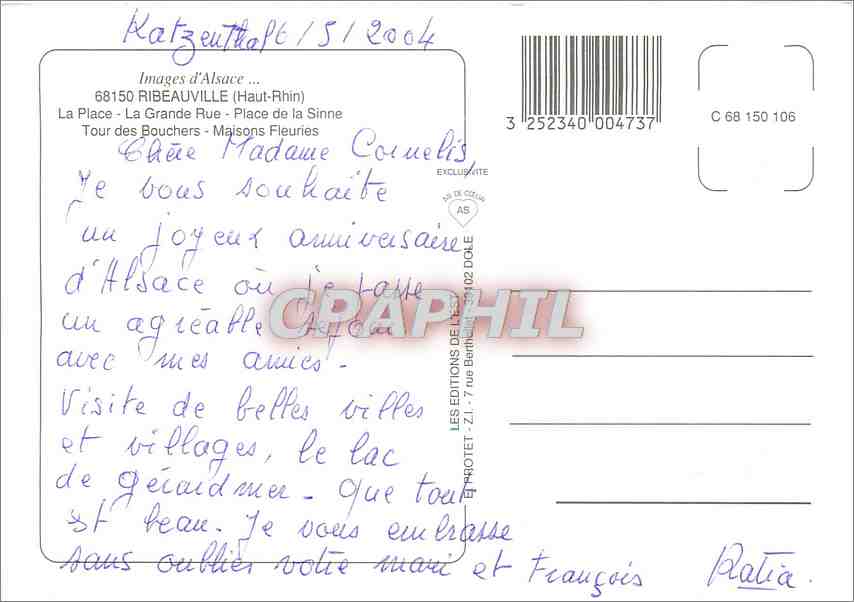 Katzenthal 6/5/2004
Images d'Alsace ...
68150 RIBEAUVILLE (Haut-Rhin)
La Place - La Grande Rue - Place de la Sinne
Tour des Bouchers - Maisons Fleuries
Chère Madame Cornelis,
Je vous souhaite
un joyeux anniversaire
d'Alsace où je passe
un agréable séjour
avec mes amies.
Visite de belles villes
et villages, le lac
de Gérardmer. Que tout
est beau. Je vous embrasse
sans oublier votre mari et François
Katia.
EXCLUSIVITE
AS DE CŒUR
AS
LES EDITIONS DE L'EST
Ei PROTET - Z.I. - 7 rue Berthollet - 39102 DOLE
3 252340 004737
C 68 150 106
CPAPHIL